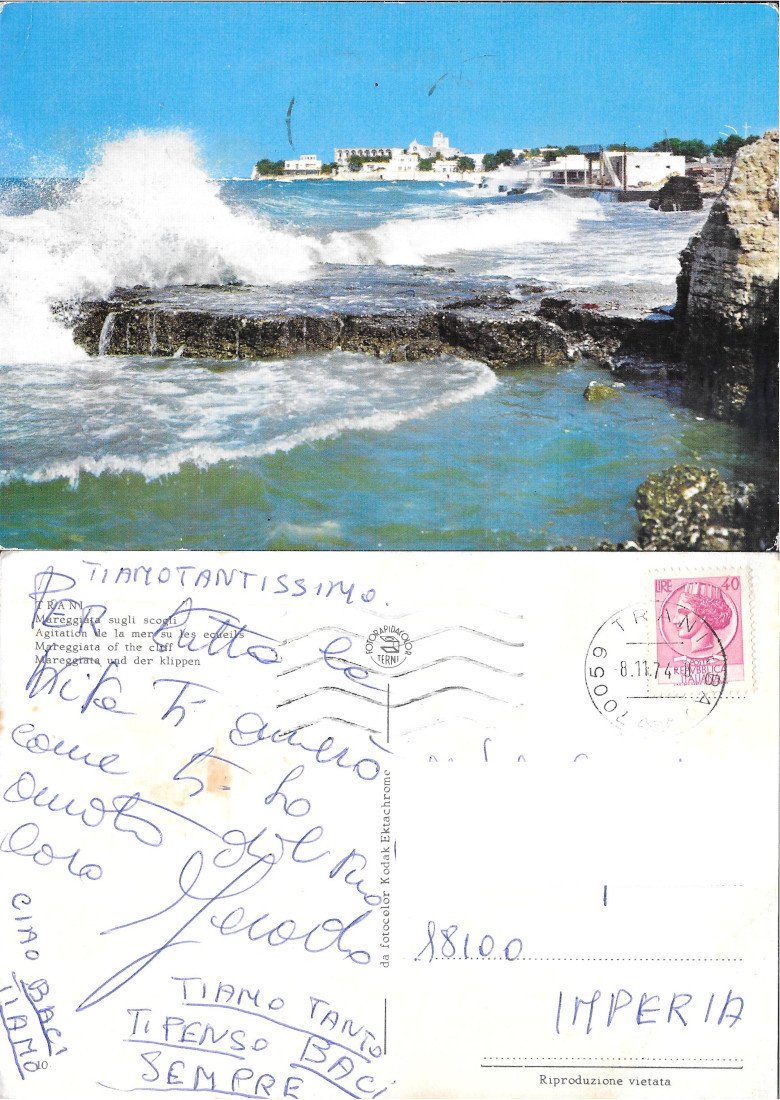 TIAMOTANTISSIMO.
TRANI
Mareggiata sugli scogli
Agitation de la mer su les ecueils
Mareggiata of the cliff
Mareggiata und der klippen
PER tutta la
Vita Ti amerò
come Ti ho
amato dal
loro
CIAO BACI
TIAMO
TIAMO TANTO
TI PENSO BACI
SEMPRE
10
FOTORAPIDACOLOR
TERNI
da fotocolor Kodak Ektachrome
LIRE 40
REPUBBLICA
ITALIANA
70059 TRANI
-8.11.74
18100
IMPERIA
Riproduzione vietata